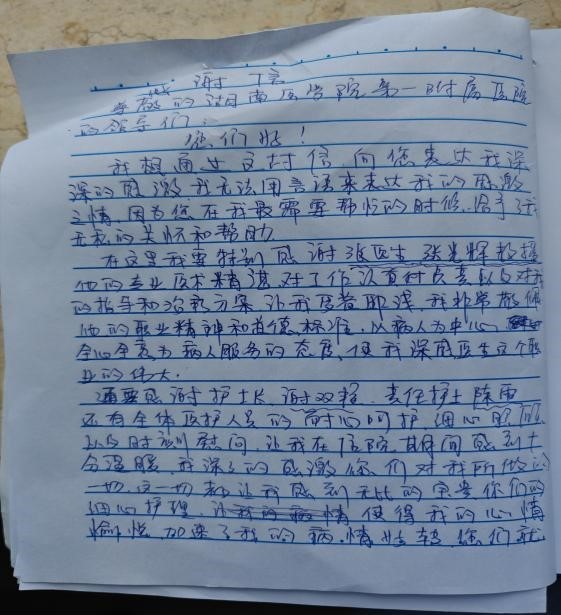 感谢信
尊敬的湖南医学院第一附属医院
的领导们：
您们好！
我想通过这封信，向您表达我深
深的感激，我无法用言语来表达我的感激
之情，因为您在我最需要帮忙的时候，给予了我
无私的关怀和帮助。
在这里我要特别感谢张医生张光辉教授
他的专业技术精湛，对工作认真和负责以及对我
的指导和治疗方案让我受益匪浅，我非常敬佩
他的职业精神和道德标准，以病人为中心
全心全意为病人服务的态度，使我深感医生这个职
业的伟大。
还要感谢护士长，谢双 责任护士陈雨
还有全体医护人员的耐心呵护，细心照顾
以及时刻慰问，让我在住院期间感到十
分温暖，我深深的感激你们对我所做的
一切，这一切都让我感到无比的宝贵你们的
细心护理，让我的病情使得我的心情
愉悦，加深了我的病情好转，您们就